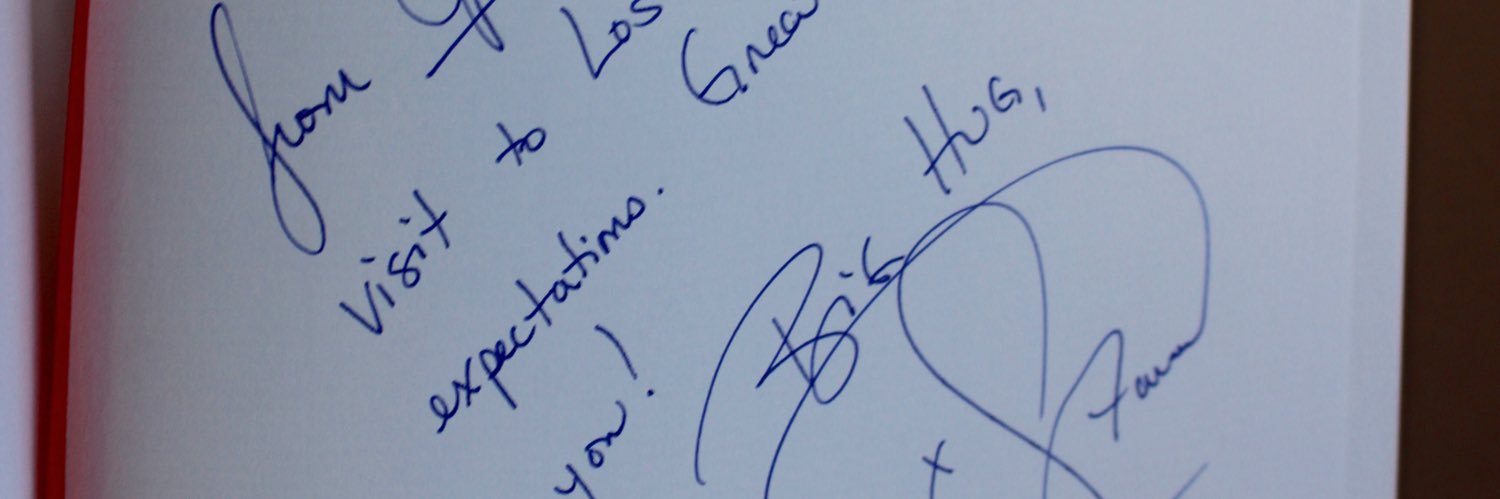 from
visit to Los
expectations. Grea
you!
Big Hug,
x